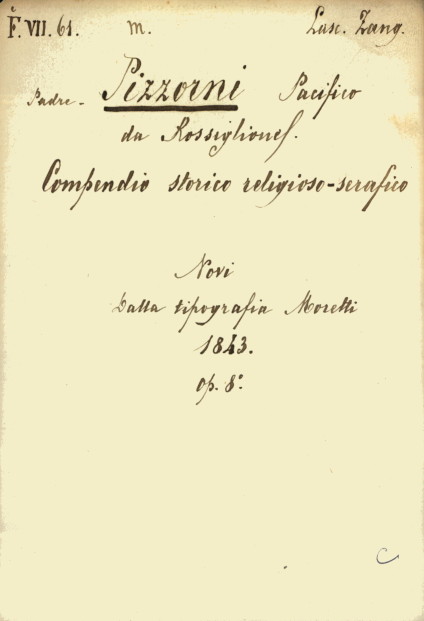 F. VII. 61. m. Lasc. Zang.
Padre - Pizzorni Pacifico
da Rossiglione.
Compendio storico religioso-serafico
Novi
Dalla tipografia Moretti
1843.
op. 8°.
C